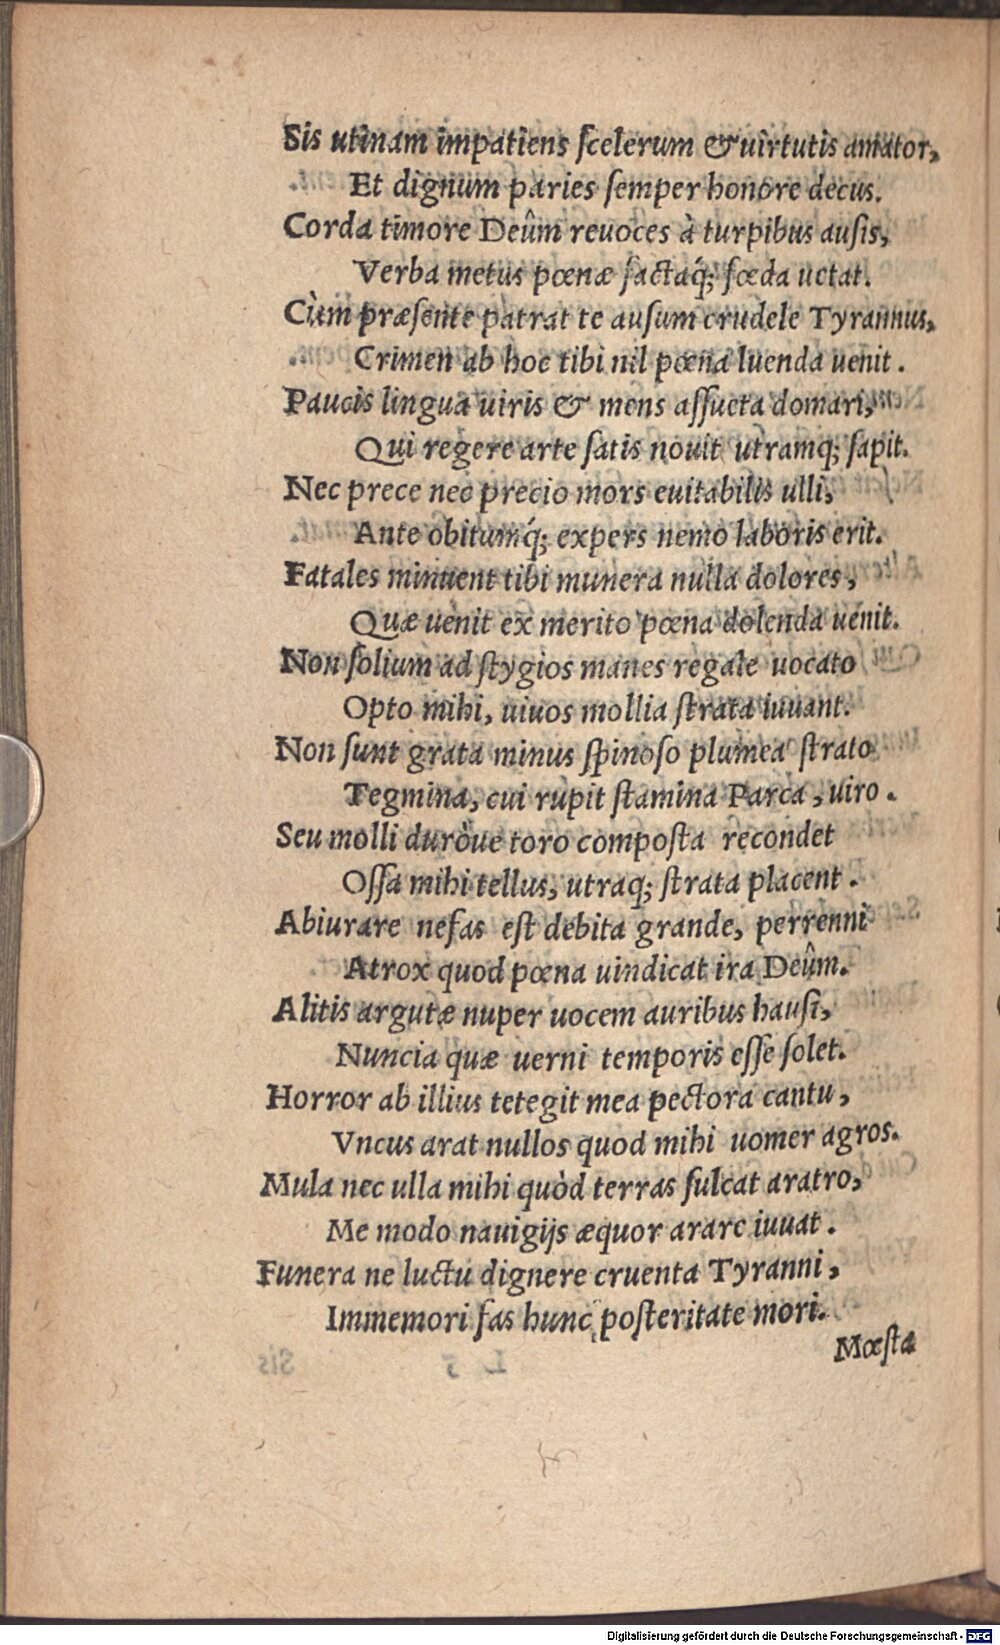 Sis utinam impatiens ſcelerum & uirtutis amator,
Et dignum paries ſemper honore decus.
Corda timore Deûm reuoces à turpibus auſis,
Verba metus pœnæ factaq́; fœda uetat.
Cùm præſente patrat te auſum crudele Tyrannus,
Crimen ab hoc tibi nil pœna luenda uenit.
Paucis lingua uiris & mens aſſueta domari,
Qui regere arte ſatis nouit utramq; ſapit.
Nec prece nec precio mors euitabilis ulli,
Ante obitumq́; expers nemo laboris erit.
Fatales minuent tibi munera nulla dolores,
Quæ uenit ex merito pœna dolenda uenit.
Non ſolium ad ſtygios manes regale uocato
Opto mihi, uiuos mollia ſtrata iuuant.
Non ſunt grata minus ſpinoſo plumea ſtrato
Tegmina, cui rupit ſtamina Parca, uiro.
Seu molli duróue toro compoſta recondet
Oſſa mihi tellus, utraq; ſtrata placent.
Abiurare nefas eſt debita grande, perrenni
Atrox quod pœna uindicat ira Deûm.
Alitis argutæ nuper uocem auribus hauſi,
Nuncia quæ uerni temporis eſſe ſolet.
Horror ab illius tetegit mea pectora cantu,
Vncus arat nullos quod mihi uomer agros.
Mula nec ulla mihi quòd terras ſulcat aratro,
Me modo nauigijs æquor arare iuuat.
Funera ne luctu dignere cruenta Tyranni,
Immemori fas hunc poſteritate mori.
Mœſta
Digitalisierung gefördert durch die Deutsche Forschungsgemeinschaft - DFG